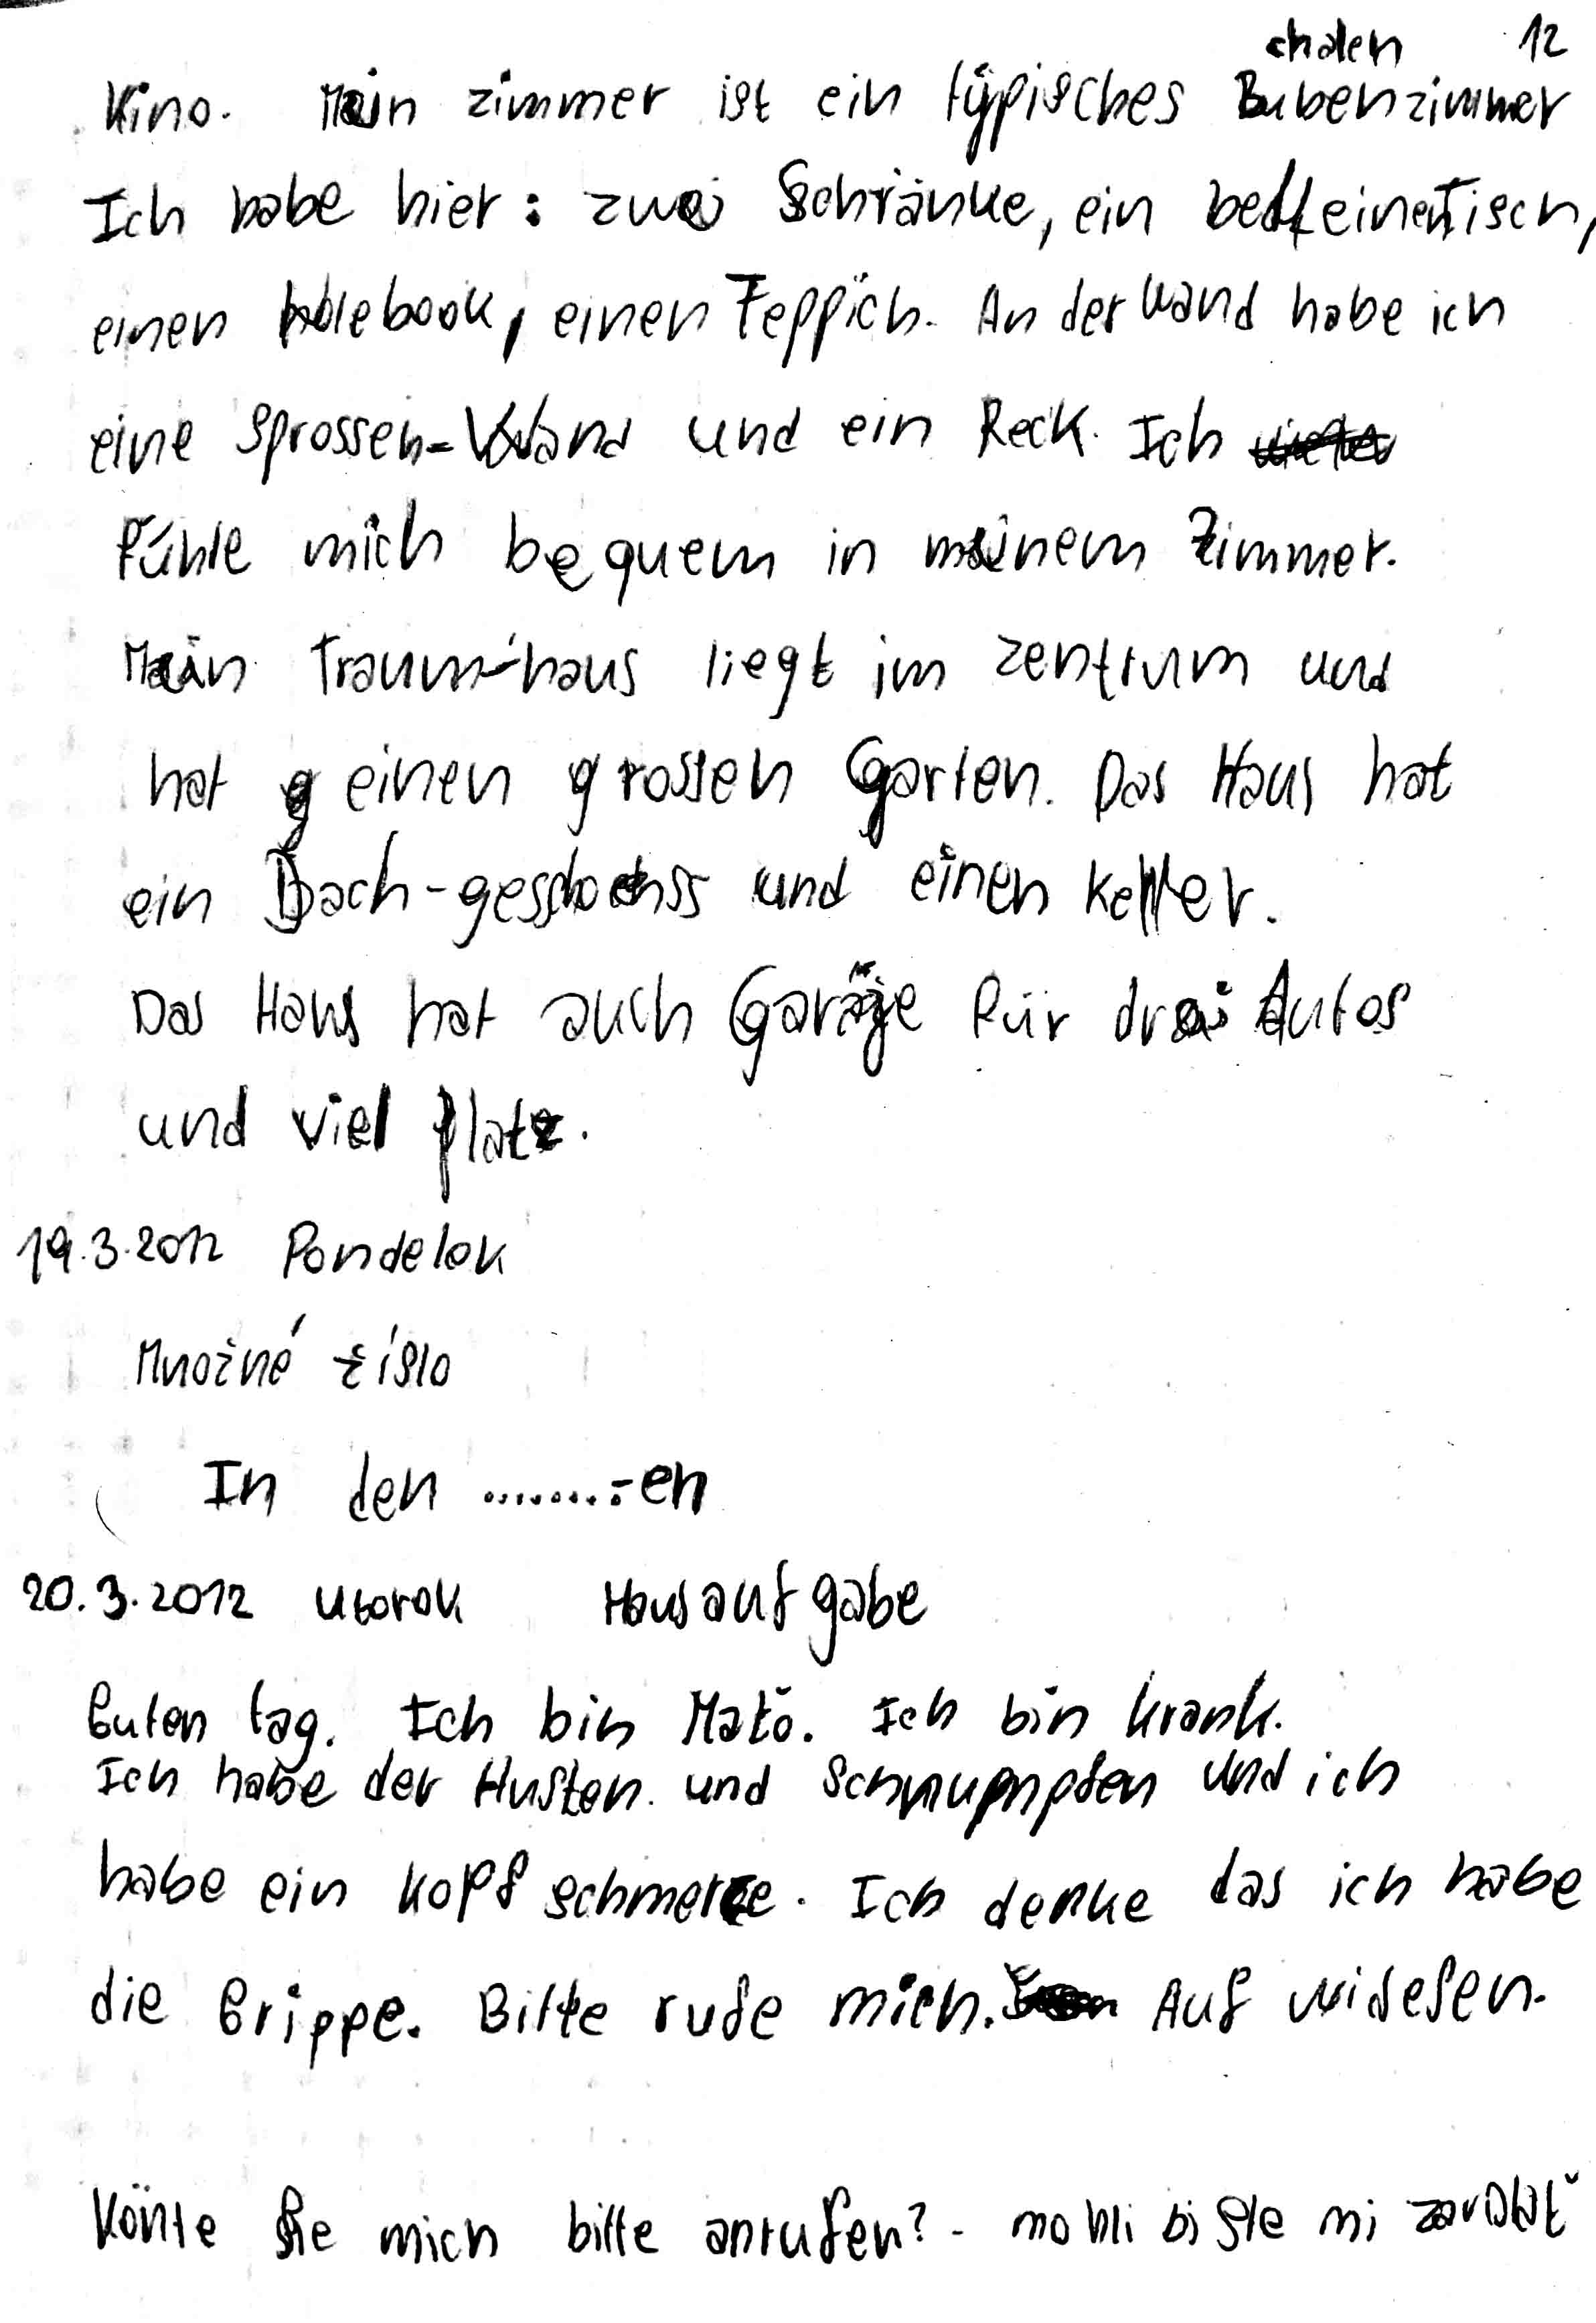 chalen 12
Kino. Mein zimmer ist ein typisches Bubenzimmer
Ich habe hier: zwei Schränke, ein bett einen Tisch,
einen notebook, einen Teppich. An der wand habe ich
eine Sprossen-Wand und ein Reck. Ich
fühle mich bequem in meinem Zimmer.
Mein Traum-haus liegt im zentrum und
hat einen grossen Garten. Das Haus hat
ein Dach-geschoss und einen keller.
Das Haus hat auch Garáje für drei Autos
und viel platz.
19.3.2012 Pondelok
Množné číslo
In den .........-en
20.3.2012 utorok Hausaufgabe
Guten tag. Ich bin Maťo. Ich bin krank.
Ich habe der Husten und Schnupnpfen und ich
habe ein kopf schmerze. Ich denke das ich habe
die Grippe. Bitte rufe mich. Auf widesen.
Könte Sie mich bitte anrufen? - mohli bi ste mi zavolať